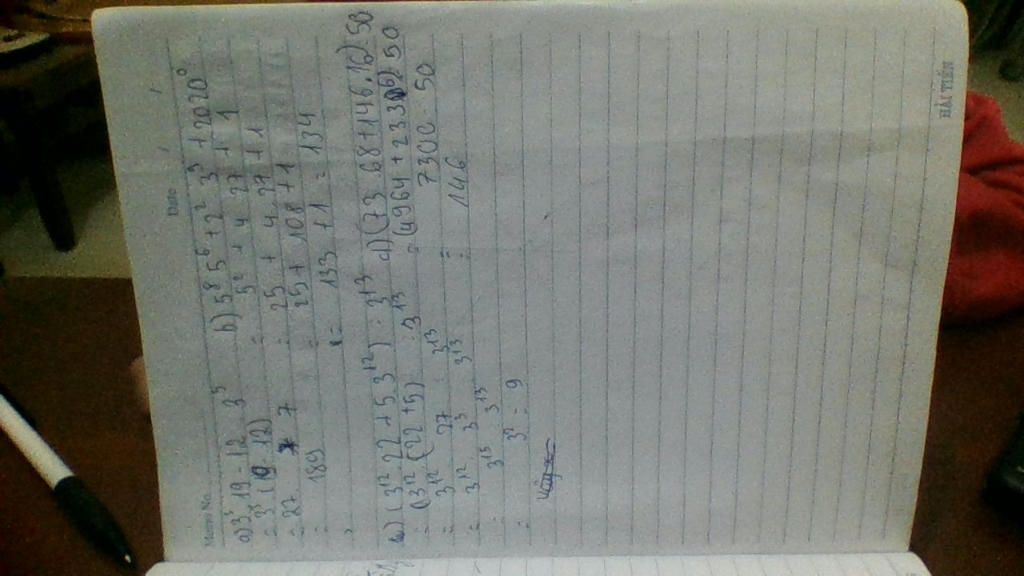 Memo No.
Date / /
a) 3³ 19 - 12 3³
= 3³ (19 12)
= 27 7
= 189
b) 5⁸ 5⁶ + 2² 3³ + 2020⁰
= 5² + 4 27 + 1
= 25 + 4 27 + 1
= 25 + 108 + 1
= 133 + 1 = 134
(3¹² 22 + 5 3¹²) : 3¹³
= (3¹² (22 + 5) : 3¹³
= 3¹² 27 : 3¹³
= 3¹² 3³ 3¹³
3¹⁵ 3¹³
= 3² = 9
d) (73 68 + 146.16) 50
= (4964 + 2336) 50
= 7300 50
= 146
HẢI TIẾN